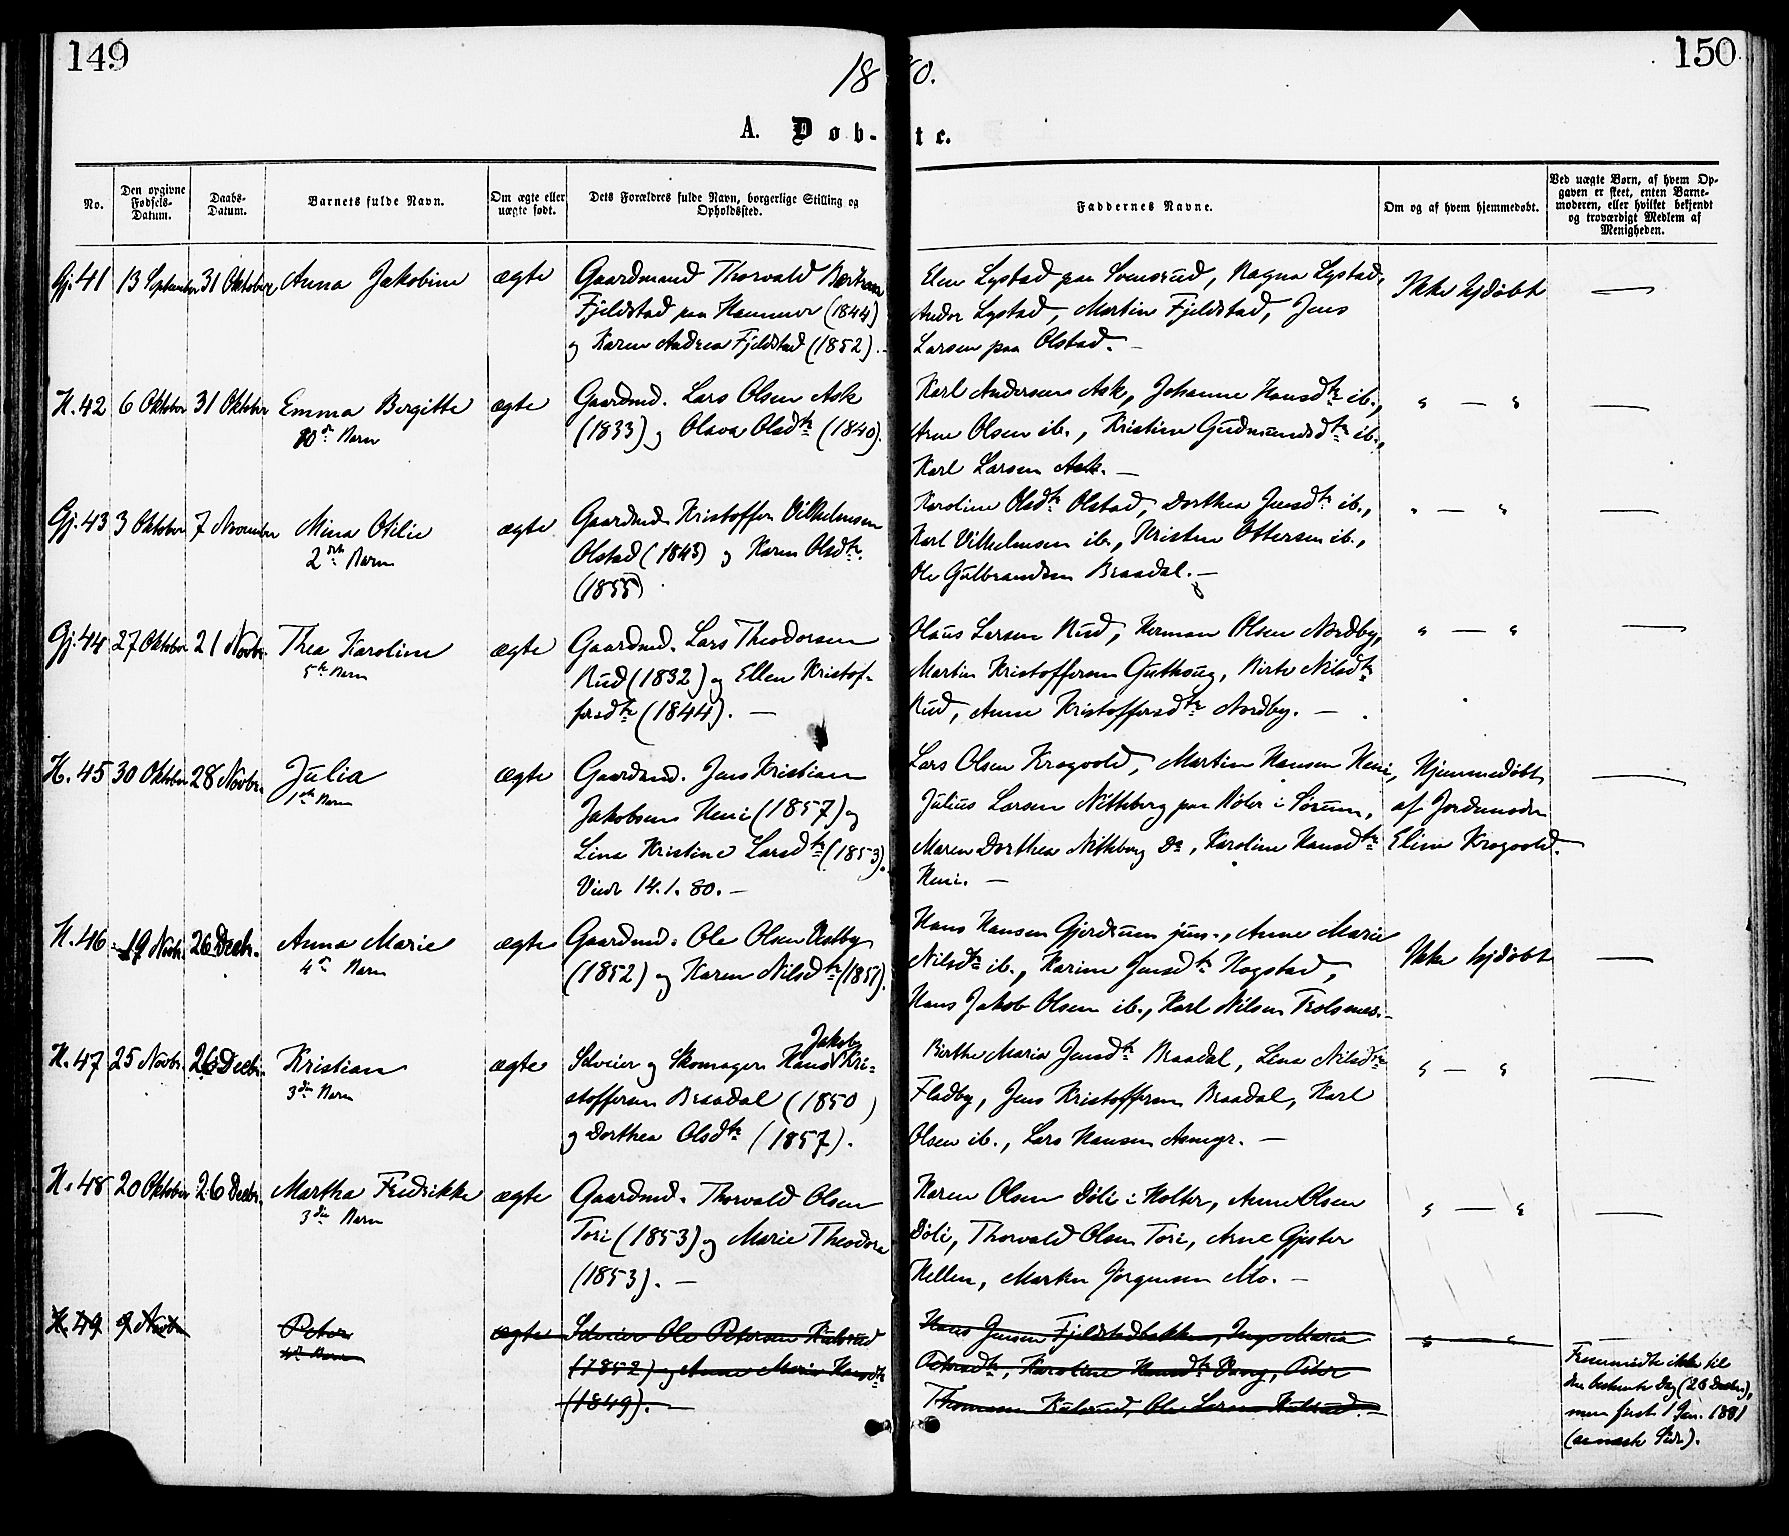 149
150
1880.
A. Døb-te.
No.
Den opgivne Fødsels-Datum.
Daabs-Datum.
Barnets fulde Navn.
Om ægte eller uægte født.
Dets Forældres fulde Navn, borgerlige Stilling og Opholdssted.
Faddernes Navne.
Om og af hvem hjemmedøbt.
Ved uægte Børn, af hvem Op-
gaven er skeet, enten Barne-
moderen, eller hvilket bekjendt
og troværdigt Medlem af
Menigheden.
Gj. 41 13 September 31 Oktober Anna Jakobine ægte Gaardmand Thorvald
Fjeldstad paa Hammer (1844)
og Karen Andrea Fjeldstad (1852). -
Elen Lystad paa Svensrud, Ragna Lystad,
Andor Lystad, Martin Fjeldstad, Jens
Larsen paa Olstad. -
Ikke hjdøbt —
H. 42 6 Oktober 31 Oktober Emma Bergitte ægte Gaardmd. Lars Olsen Ask
10de Barn
(1833) og Olava Olsdtr (1840).
Karl Andersen Ask, Johanne Hansdtr ib.,
Arne Olsen ib., Kristine Gudmundsdtr ib.,
Karl Larsen Ask. -
" — " —
Gj. 43 3 Oktober 7 November Mina Otilie ægte Gaardmd. Kristoffer Vilhelmsen
2det Barn
Olstad (1843) og Karen Olsdtr.
(1855)
Karoline Olsdtr Olstad, Dorthea Jensdtr ib.,
Karl Vilhelmsen ib., Kristen Ottersen ib.,
Ole Gulbrandsen Braadal. -
" — " —
Gj. 44 27 Oktober 21 Novbr. Thea Karoline ægte Gaardmd. Lars Theodorsen
5te Barn
Rud (1832) og Ellen Kristof-
fersdtr (1844). —
Olaus Larsen Rud, Herman Olsen Nordby,
Martin Kristoffersen Guthaug, Birte Nilsdtr
Rud, Anne Kristoffersdtr Nordby. —
" — " —
H. 45 30 Oktober 28 Novbr. Julia ægte Gaardmd. Jens Kristian
1ste Barn
Jakobsen Heni (1857) og
Lina Kristine Larsdtr (1853).
Viede 14.1.80. -
Lars Olsen Krogvold, Martin Hansen Heni,
Julius Larsen Nitteberg paa Røler i Sørum,
Maren Dorthea Nitteberg Do, Karoline Hansdtr
Heni. —
Hjemmedøbt
af Jordemoder
Eline Krogvold.
—
H. 46 19 Novbr. 26 Decbr. Anna Marie ægte Gaardmd. Ole Olsen Ustby
4de Barn
(1852) og Karen Nilsdtr (1851).
Hans Hansen Gjerdrum jun., Anne Marie
Nilsdtr ib., Karine Jensdtr Hogstad,
Hans Jakob Olsen ib., Karl Nilsen Trolsnes. -
Ikke hjdøbt —
H. 47 25 Novbr. 26 Decbr. Kristian ægte Selveier og Skomager Hans Jakob Kri-
3die Barn
stoffersen Braadal (1850)
og Dorthea Olsdtr (1857).
Birthe Maria Jensdtr Braadal, Lina Nilsdtr
Fladby, Jens Kristoffersen Braadal, Karl
Olsen ib., Lars Hansen Asmyr. —
" — " —
H. 48 20 Oktober 26 Decbr. Martha Fredrikke ægte Gaardmd. Thorvald Olsen
3die Barn
Tori (1853) og Marie Theodora
(1853). —
Karen Olsen Døli i Holter, Anne Olsen
Døli, Thorvald Olsen Tori, Arne Gjester
Hellen, Marken Jørgensen Mo. -
" — " —
H. 49 9 Novbr Peter ægte Selveier Ole Petersen Kulsrud
4de Barn
(1852) og Anne Marie Hansdtr
(1849). —
Hans Jensen Fjeldstadbakken, Inge Maria
Petersdtr, Karoline Hansdtr Berg, Peter
Thomesen Kulsrud, Ole Larsen Kulsrud. -
" — " —
Fremmødte ikke til
den bestemte Dag (26 Decbr),
men først 1 Jan. 1881
(se næste Side).